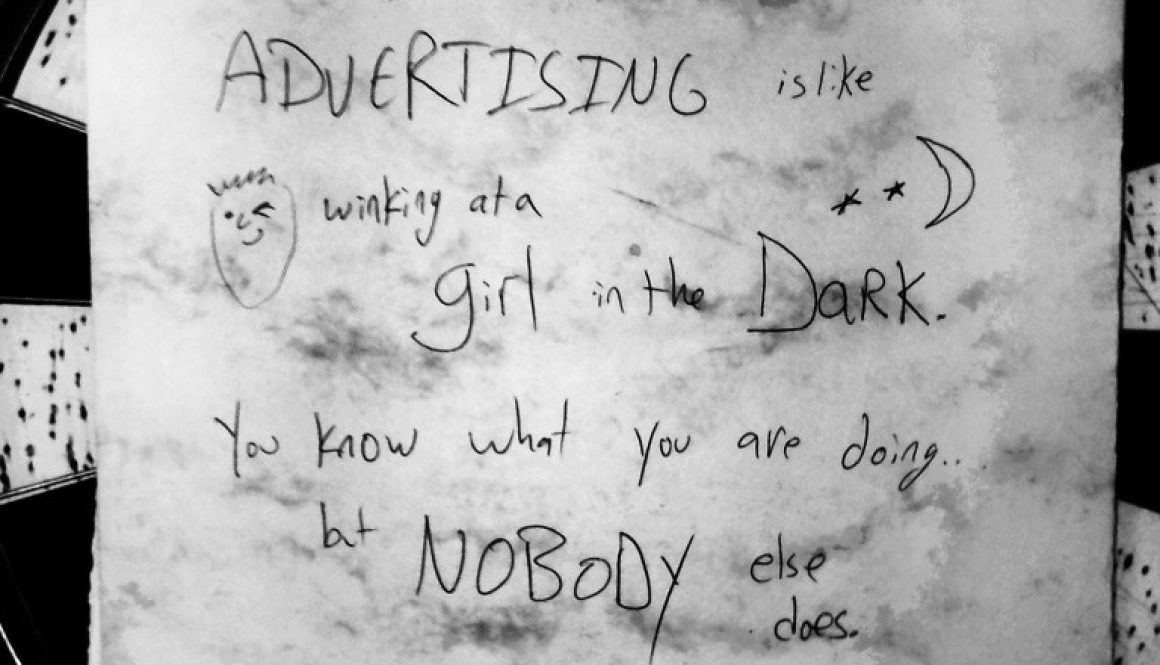 ADVERTISING is like
winking at a
girl in the DARK.
You know what you are doing...
but NOBODY else
does.